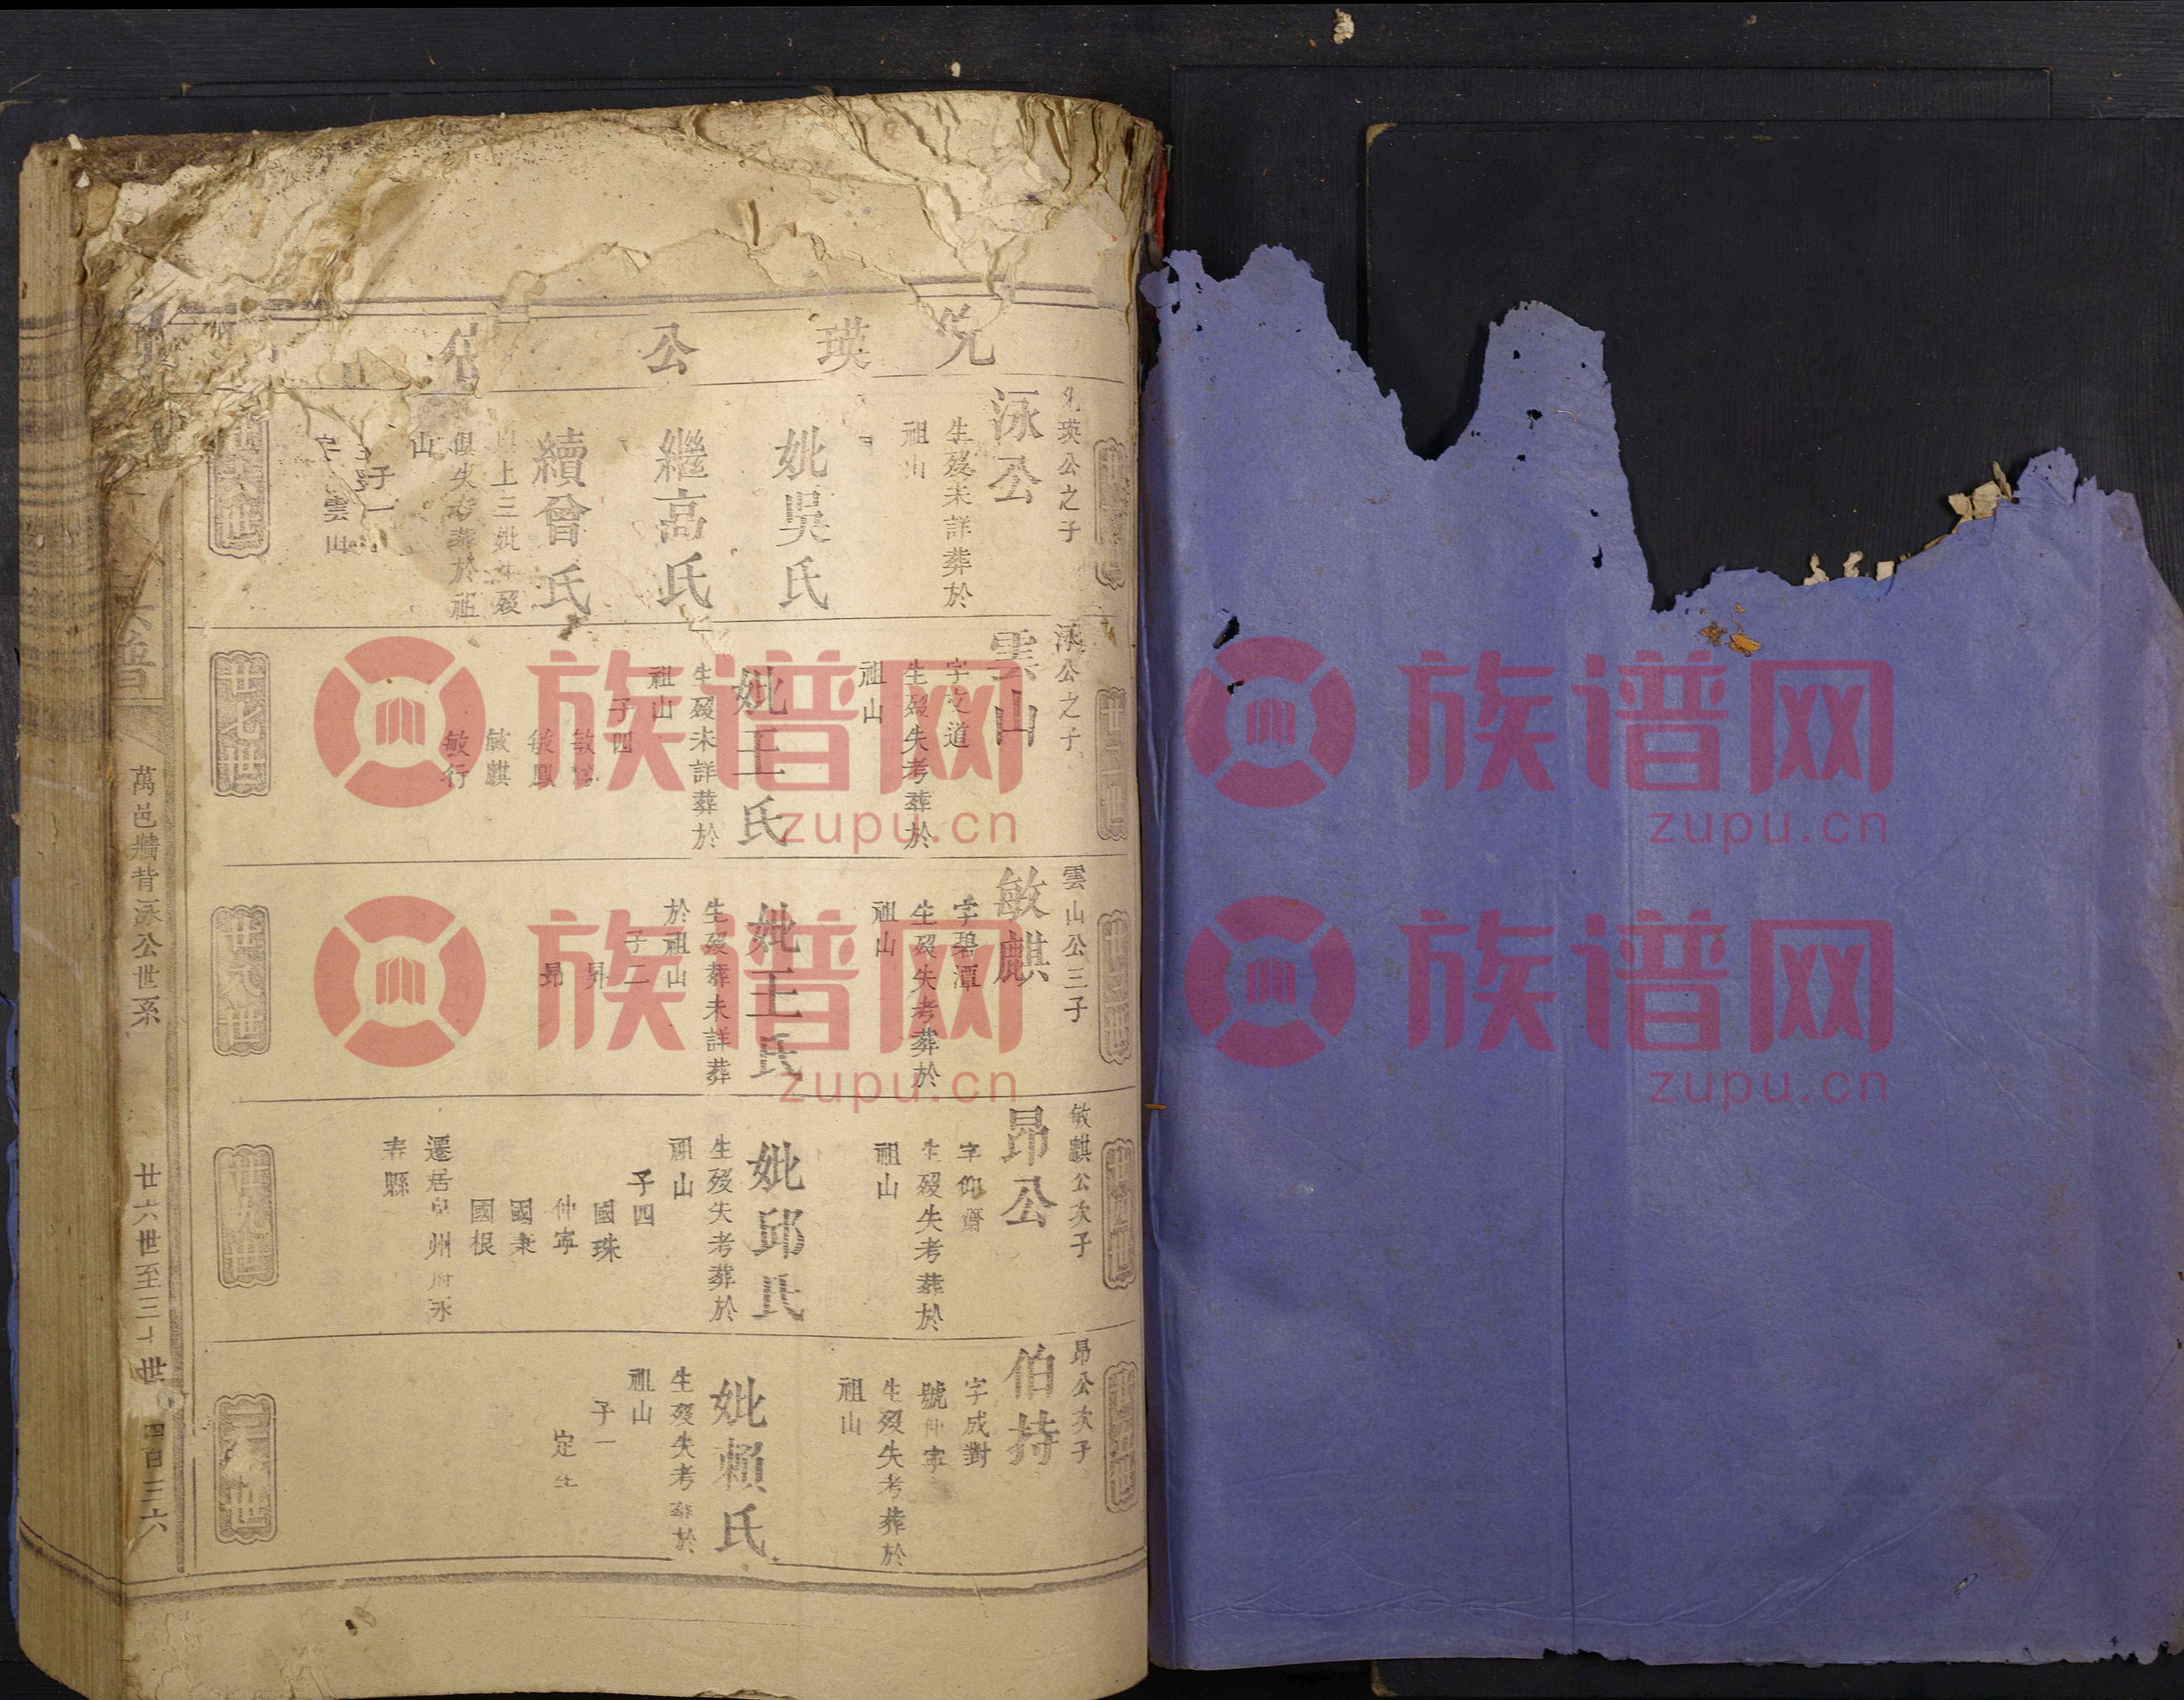 瑛公
瑛公之子
泳公
生歿未詳葬於
祖山
妣吳氏
繼高氏
續曾氏
上三妣生歿
俱失考葬於祖
山
子一
雲山
泳公之子
雲山
字文道
生歿失考葬於
祖山
妣王氏
生歿未詳葬於
祖山
子四
敏鳳
敏麒
敏行
廿七世
雲山公三子
敏麒
字碧潭
生歿失考葬於
祖山
妣王氏
生歿葬未詳葬
於祖山
子二
昇
昂
廿八世
敏麒公次子
昂公
字仰齋
生歿失考葬於
祖山
妣邱氏
生歿失考葬於
祖山
子四
國珠
仲寧
國秉
國根
遷居泉州府永
春縣
廿九世
昂公次子
伯持
字成對
號仲寧
生歿失考葬於
祖山
妣賴氏
生歿失考葬於
祖山
子一
定生
三十世
萬邑牆背泳公世系
廿六世至三十世
四百三六
族谱网
zupu.cn
族谱网
zupu.cn
族谱网
zupu.cn
族谱网
zupu.cn